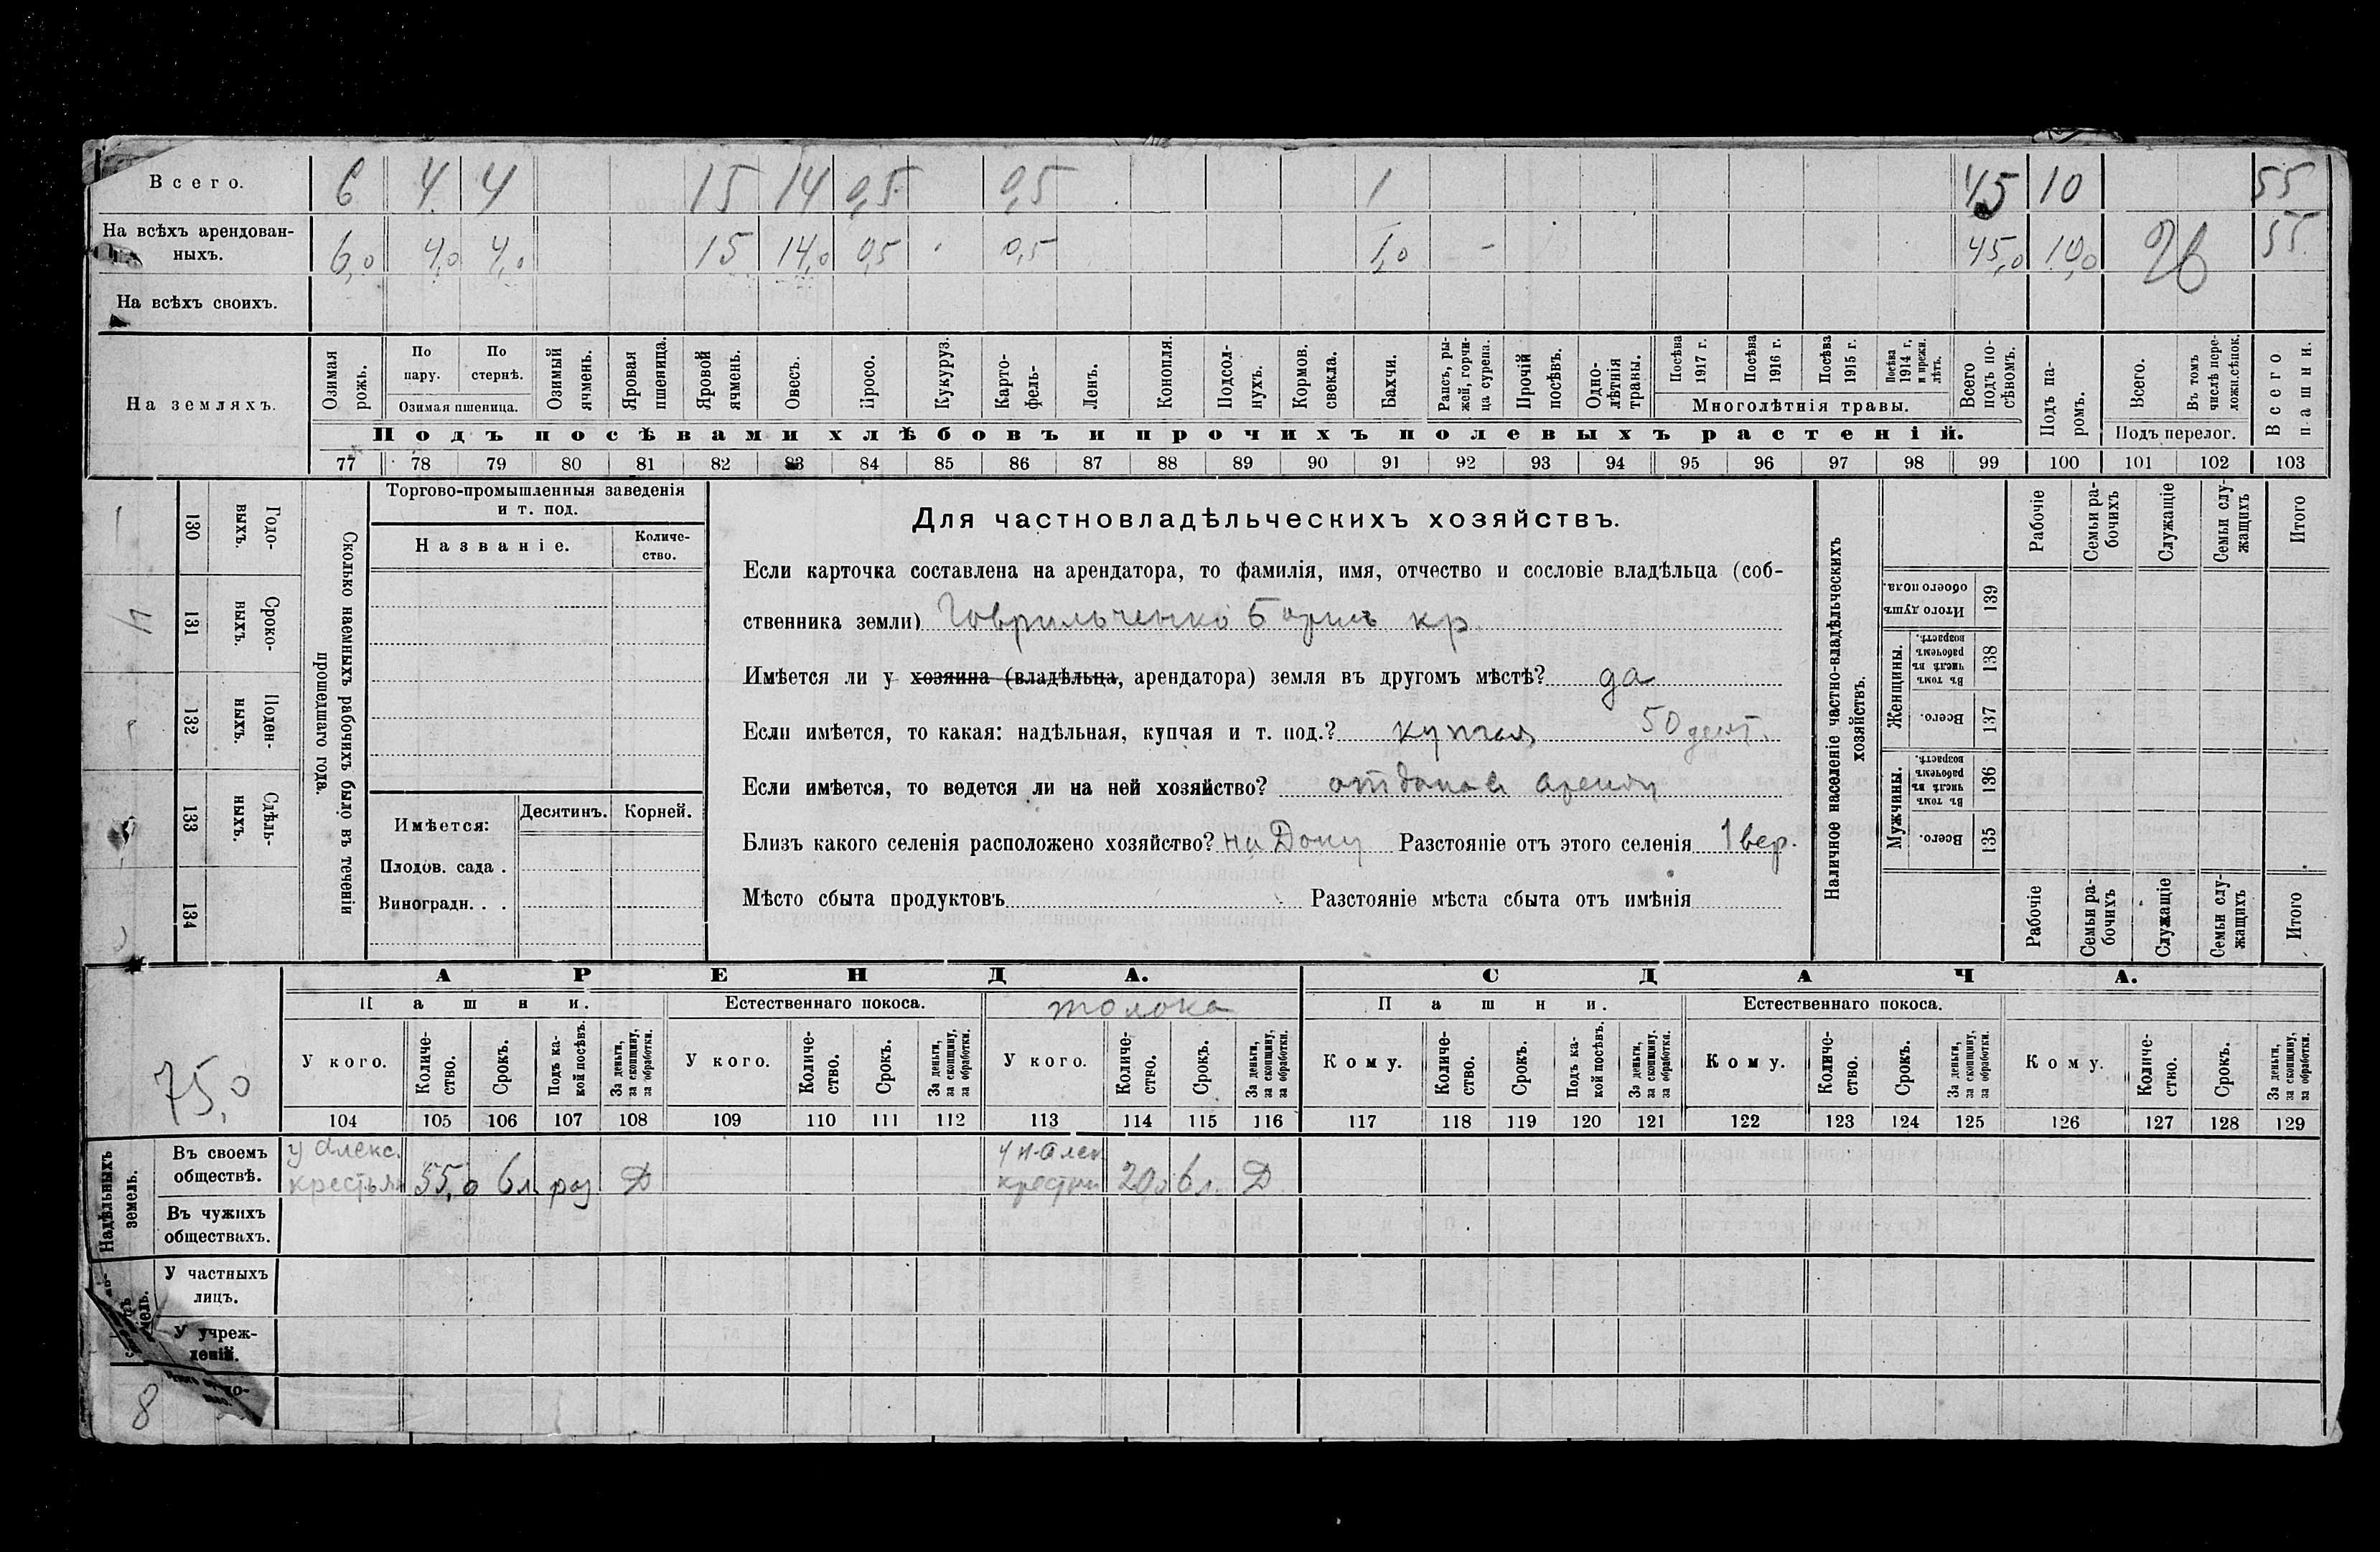 Всего. 6 4 4 15 14 0,5 0,5 1 45 10 55
На всѣхъ арендован-
ныхъ. 6,0 4,0 4,0 15 14,0 0,5 0,5 1,0 - 45,0 10,0 26 55
На всѣхъ своихъ.
На земляхъ.
Озимая рожь.
По пару.
По стернѣ.
Озимая пшеница.
Озимый ячмень.
Яровая пшеница.
Яровой ячмень.
Овесъ.
Просо.
Кукуруз.
Карто-
фель-
Ленъ.
Конопля.
Подсол-
нухъ.
Кормов. свекла.
Бахчи.
Рапсъ, ры-
жей, горчи-
ца сурепа.
Прочій посѣвъ.
Одно-
лѣтнія травы.
Посѣва 1917 г.
Посѣва 1916 г.
Посѣва 1915 г.
Посѣва 1914 г. и прежн. лѣтъ.
Многолѣтнія травы.
Всего подъ по-
сѣвомъ.
Подъ па-
ромъ.
Всего.
Въ томъ числѣ пере-
ложн.сѣнок.
Подъ перелог.
Всего пашни.
Подъ посѣвами хлѣбовъ и прочихъ полевыхъ растеній.
77 78 79 80 81 82 83 84 85 86 87 88 89 90 91 92 93 94 95 96 97 98 99 100 101 102 103
Годо-
выхъ.
130
Сроко-
выхъ.
131
Поден-
ныхъ.
132
Сдѣль-
ныхъ.
133
134
Сколько наемныхъ рабочихъ было въ теченіи
прошедшаго года.
Торгово-промышленныя заведенія
и т. под.
Названіе.
Количе-
ство.
Имѣется:
Десятинъ.
Корней.
Плодов. сада .
Виноградн. . .
Для частновладѣльческихъ хозяйствъ.
Если карточка составлена на арендатора, то фамилія, имя, отчество и сословіе владѣльца (соб-
ственника земли) Говрильченко Борисъ кр
Имѣется ли у хозяина (владѣльца, арендатора) земля въ другомъ мѣстѣ? да
Если имѣется, то какая: надѣльная, купчая и т. под.? купчая 50 десят.
Если имѣется, то ведется ли на ней хозяйство? отдана в аренду
Близъ какого селенія расположено хозяйство? на Дону Разстояніе отъ этого селенія 1 вер.
Мѣсто сбыта продуктовъ Разстояніе мѣста сбыта отъ имѣнія
Наличное населеніе частно-владѣльческихъ
хозяйствъ.
Рабочіе
Семьи ра-
бочихъ
Служащіе
Семьи слу-
жащихъ
Итого
Итого душъ обоего пола.
139
Женщины.
Въ томъ числѣ въ рабочемъ возрастѣ.
138
Всего.
137
Мужчины.
Въ томъ числѣ въ рабочемъ возрастѣ.
136
Всего.
135
Рабочіе
Семьи ра-
бочихъ
Служащіе
Семьи слу-
жащихъ
Итого
75,0
АРЕНДА.
СДАЧА.
Пашни.
Естественнаго покоса.
толока
Пашни.
Естественнаго покоса.
У кого.
Количе-
ство.
Срокъ.
Подъ ка-
кой посѣвъ.
За деньги,
за скопщину,
за обработки.
У кого.
Количе-
ство.
Срокъ.
За деньги,
за скопщину,
за обработки.
У кого.
Количе-
ство.
Срокъ.
За деньги,
за скопщину,
за обработки.
Кому.
Количе-
ство.
Срокъ.
Подъ ка-
кой посѣвъ.
За деньги,
за скопщину.
за обработки.
Кому.
Количе-
ство.
Срокъ.
За деньги,
за скопщину,
за обработки.
Кому.
Количе-
ство.
Срокъ.
За деньги,
за скопщину,
за обработки.
104 105 106 107 108 109 110 111 112 113 114 115 116 117 118 119 120 121 122 123 124 125 126 127 128 129
Надѣльныхъ
земель.
Въ своемъ
обществѣ.
у Алекс.
крестьян 55,0 6 л. раз Д
крестьян 20,0 6 л. Д
Въ чужихъ
обществахъ.
У частныхъ
лицъ.
У учреж-
деній.
8